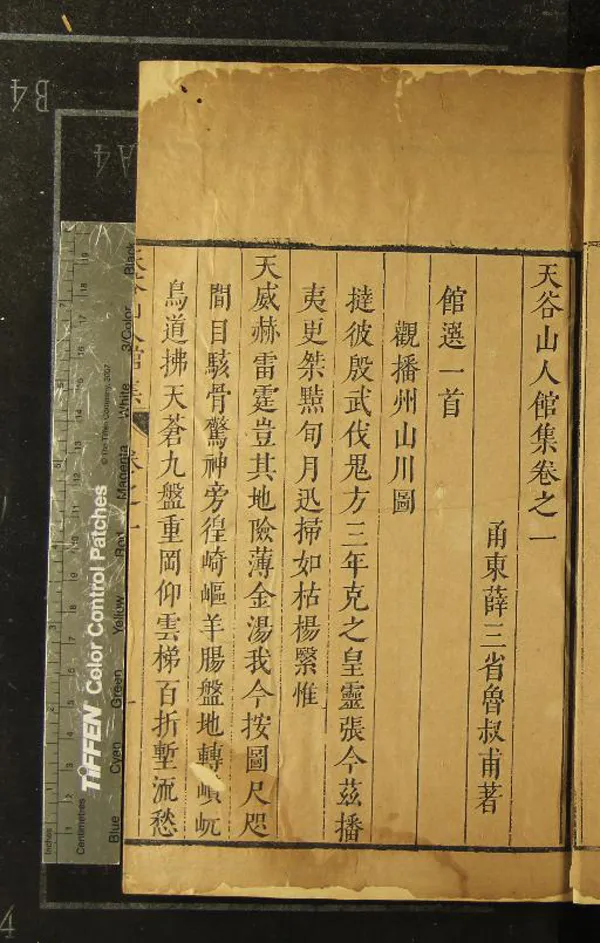 天谷山人館集卷之一
甬東薛三省魯叔甫著
館選一首
觀播州山川圖
撻彼殷武伐鬼方三年克之皇靈張今茲播
夷更桀黠旬月迅掃如枯楊繄惟
天威赫雷霆豈其地險薄金湯我今按圖尺咫
間目駭骨驚神旁徨崎嶇羊腸盤地轉巑岏
鳥道拂天蒼九盤重岡仰雲梯百折塹流愁
B4
A4
TIFFEN Color Control Patches
© The Tiffen Company, 2007
Blue Cyan Green Yellow Red Magenta White 3/Color Black
Inches
Centimetres